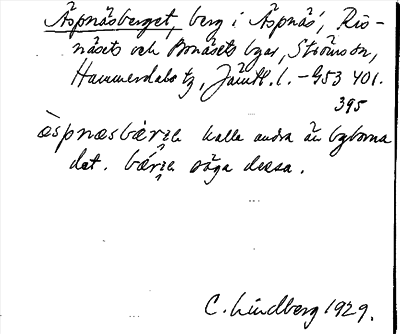 Äspnäsberget, berg i Äspnäs', Ris-
näsets och Bonäsets byar, Ströms sn,
Hammerdals tg, Jämtl. l. - G53 401.
395
kalla andra än byborna
det. säga dessa.
C. Lindberg 1929.